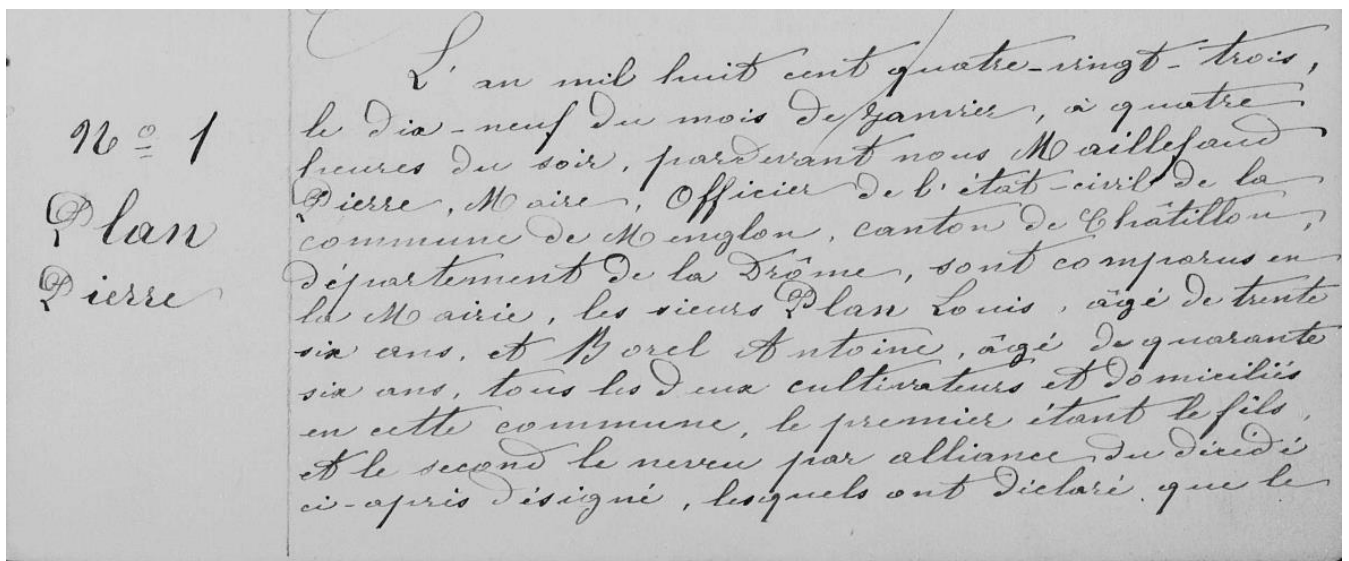 N° 1
Plan
Pierre
L'an mil huit cent quatre-vingt-trois,
le dix-neuf du mois de Janvier, à quatre
heures du soir, pardevant nous Maillefaud
Pierre, Maire, Officier de l'état-civil de la
commune de Menglon, canton de Châtillon,
département de la Drôme, sont comparus en
la Mairie, les sieurs Plan Louis, âgé de trente
six ans, et Borel Antoine, âgé de quarante
six ans, tous les deux cultivateurs et domiciliés
en cette commune, le premier étant le fils,
et le second le neveu par alliance du décédé
ci-après désigné, lesquels ont déclaré que le